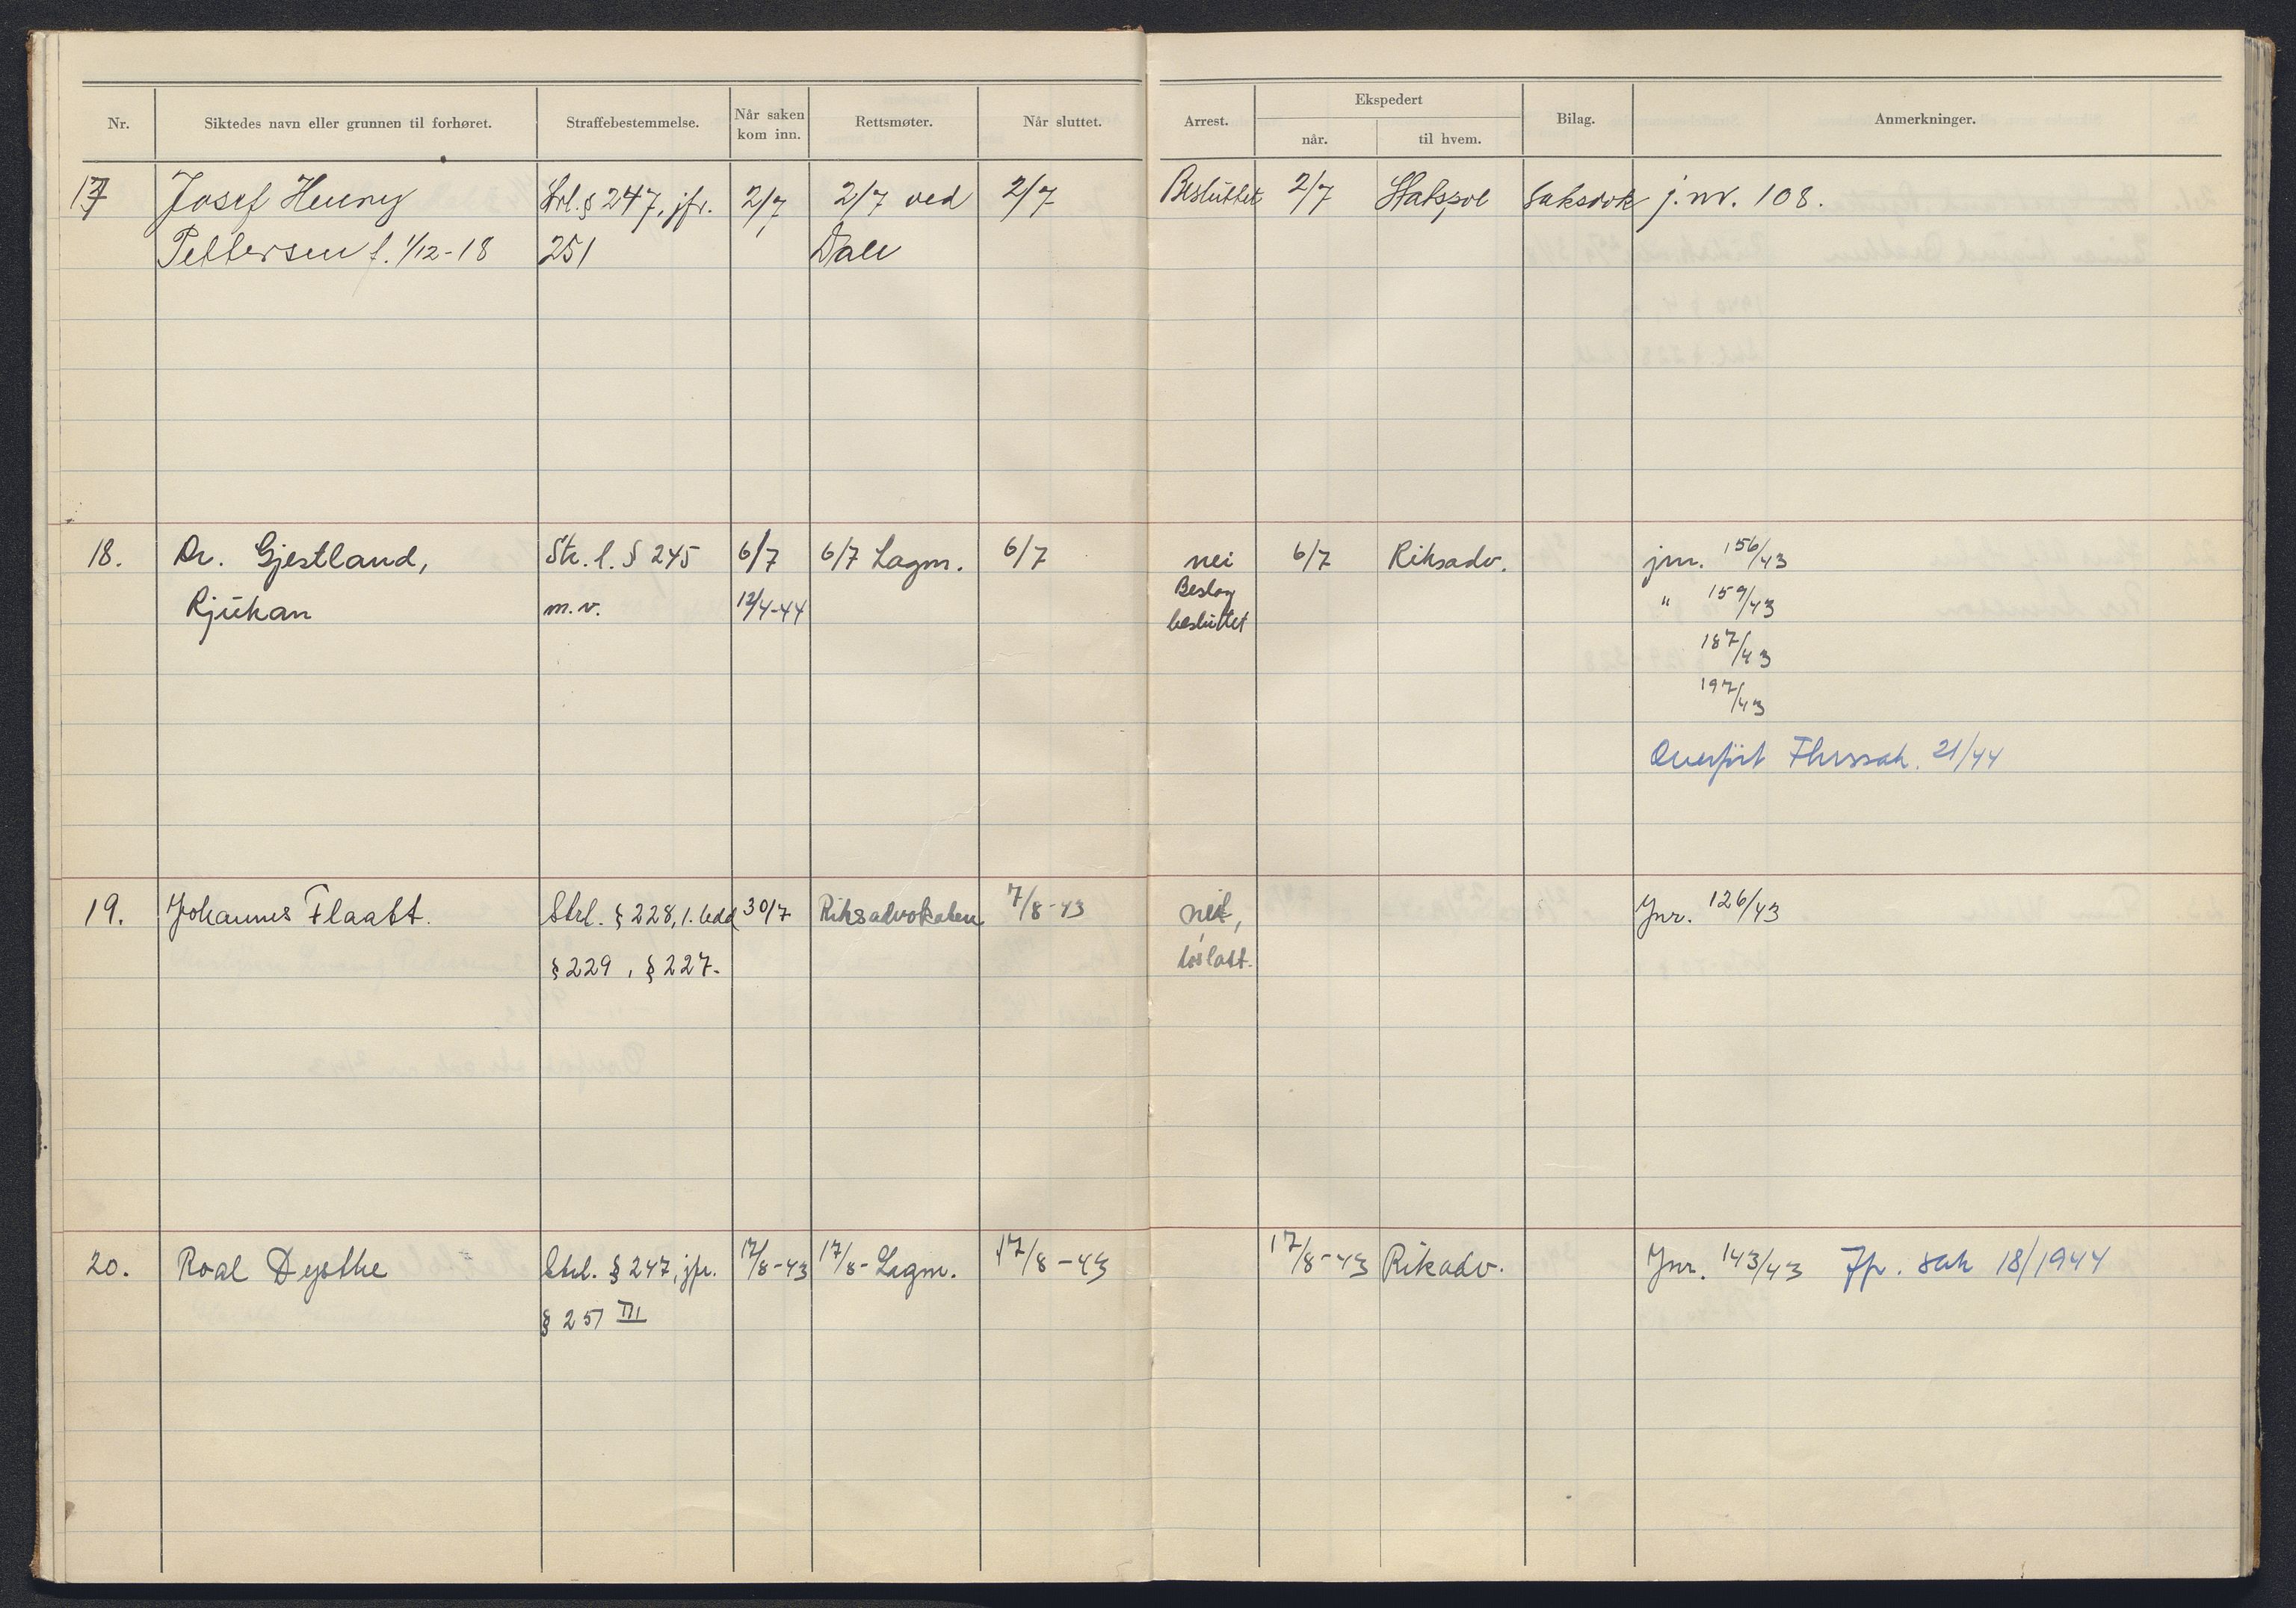 Nr. Siktedes navn eller grunnen til forhøret. Straffebestemmelse. Når saken kom inn. Rettsmøter. Når sluttet. Arrest. Ekspedert når. til hvem. Bilag. Anmerkninger.
17 Josef Henny Strl. § 247, jfr. 2/7 2/7 ved 2/7 Besluttet 2/7 Statspol Saksdok j. nr. 108.
Pettersen f. 1/12-18 251 Dale
18. Dr. Gjestland, Str. l. § 245 6/7 6/7 Lagm. 6/7 nei 6/7 Riksadv. jnr. 156/43
Rjukan m.v. 12/4-44 Beslag besluttet " 159/43
187/43
197/43
Overført Fhrssak. 21/44
19. Johannes Flaatt. Strl. § 228, 1. ledd 30/7 Riksadvokaten 7/8-43 nei, Jnr. 126/43
§ 229, § 227. løslatt.
20. Roal Dysthe Strl. § 247, jfr. 17/8-43 17/8- Lagm. 17/8-43 17/8-43 Rikadv. Jnr. 143/43 Fp. sak 18/1944
§ 251 III